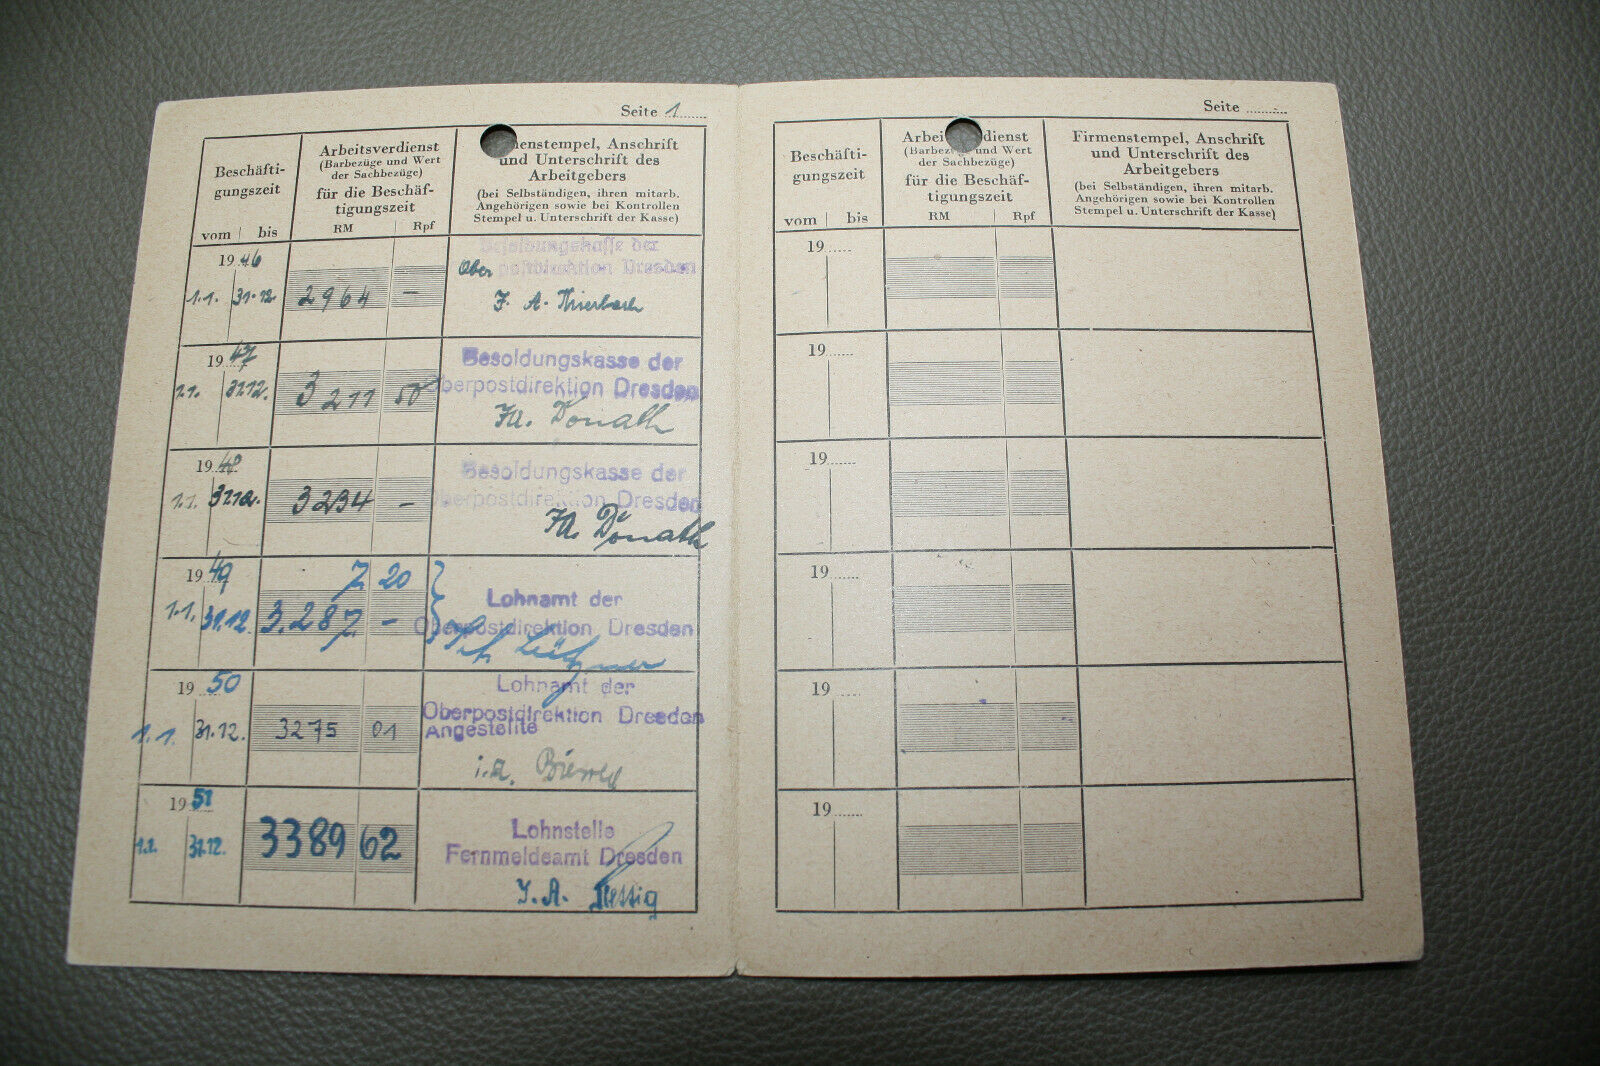 Seite 1
Beschäfti-
gungszeit
vom bis
Arbeitsverdienst
(Barbezüge und Wert
der Sachbezüge)
für die Beschäf-
tigungszeit
RM Rpf
menstempel, Anschrift
und Unterschrift des
Arbeitgebers
(bei Selbständigen, ihren mitarb.
Angehörigen sowie bei Kontrollen
Stempel u. Unterschrift der Kasse)
1946
1.1. 31.12.
2964 —
Besoldungskasse der
Ober postdirektion Dresden
J. A. Thierbach
1947
1.1. 31.12.
3211 50
Besoldungskasse der
Oberpostdirektion Dresden
J.A. Donath
1948
1.1. 31.12.
3294 —
Besoldungskasse der
Oberpostdirektion Dresden
J.A. Donath
1949
1.1. 31.12.
7 20
3.287 —
Lohnamt der
Oberpostdirektion Dresden
1950
1.1. 31.12.
3275 01
Lohnamt der
Oberpostdirektion Dresden
Angestellte
i.A.
1951
1.1. 31.12.
3389 62
Lohnstelle
Fernmeldeamt Dresden
J.A.
Seite
Beschäfti-
gungszeit
vom bis
Arbei dienst
(Barbezüge und Wert
der Sachbezüge)
für die Beschäf-
tigungszeit
RM Rpf
Firmenstempel, Anschrift
und Unterschrift des
Arbeitgebers
(bei Selbständigen, ihren mitarb.
Angehörigen sowie bei Kontrollen
Stempel u. Unterschrift der Kasse)
19
19
19
19
19
19